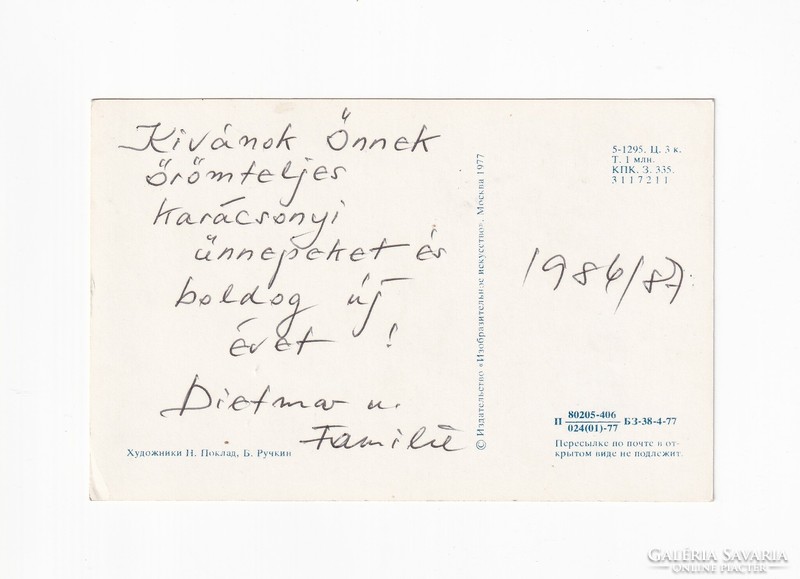 Kivánok Önnek
örömteljes
karácsonyi
ünnepeket és
boldog új
évet !
Dietmar u.
Familie
Художники Н. Поклад, Б. Ручкин
© Издательство «Изобразительное искусство». Москва 1977
5-1295. Ц. 3 к.
Т. 1 млн.
КПК. З. 335.
3117211
1986/87.
П 80205-406 БЗ-38-4-77
024(01)-77
Пересылке по почте в от-
крытом виде не подлежит.
GALÉRIA SAVARIA
ONLINE PIACTÉR